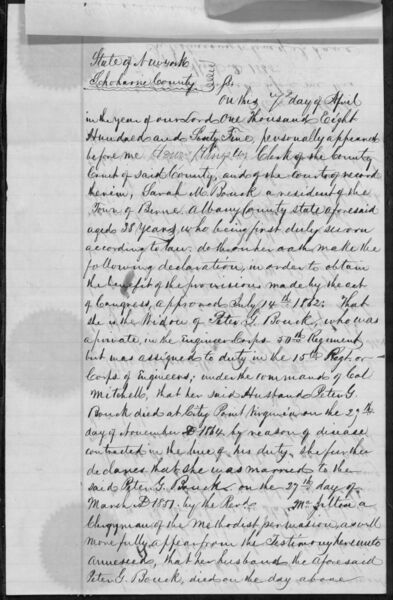 State of New York
Schoharie County } S.S.
On this 7th day of April
in the year of our Lord One Thousand Eight
Hundred and Sixty Five, personally appeared
before me Clerk of the County
Court of said County, and of the Courts of record
therein, Sarah M. Bouck a resident of the
Town of Berne Albany County state aforesaid
aged 28 years, who being first duly sworn
according to law, doth on her oath make the
following declaration, in order to obtain
the benefit of the provisions made by the act
of Congress, approved July 14th 1862: That
she is the Widow of Peter G. Bouck, who was
a private, in the Engineer Corps 50th Regiment
but was assigned to duty in the 15th Regt. or
Corps of Engineers; under the command of Col
Mitchell, that her said Husband Peter G
Bouck died at City Point Virginia on the 29th
day of November D 1864, by reason of disease
contracted in the line of his duty. She further
declares that she was married to the
said Peter G. Bouck on the 27th day of
March D 1857. by the Revd. a
Clergyman of the Methodist persuasion, as will
more fully appear from the Testimony hereunto
annexed, that her husband the aforesaid
Peter G. Bouck, died on the day above